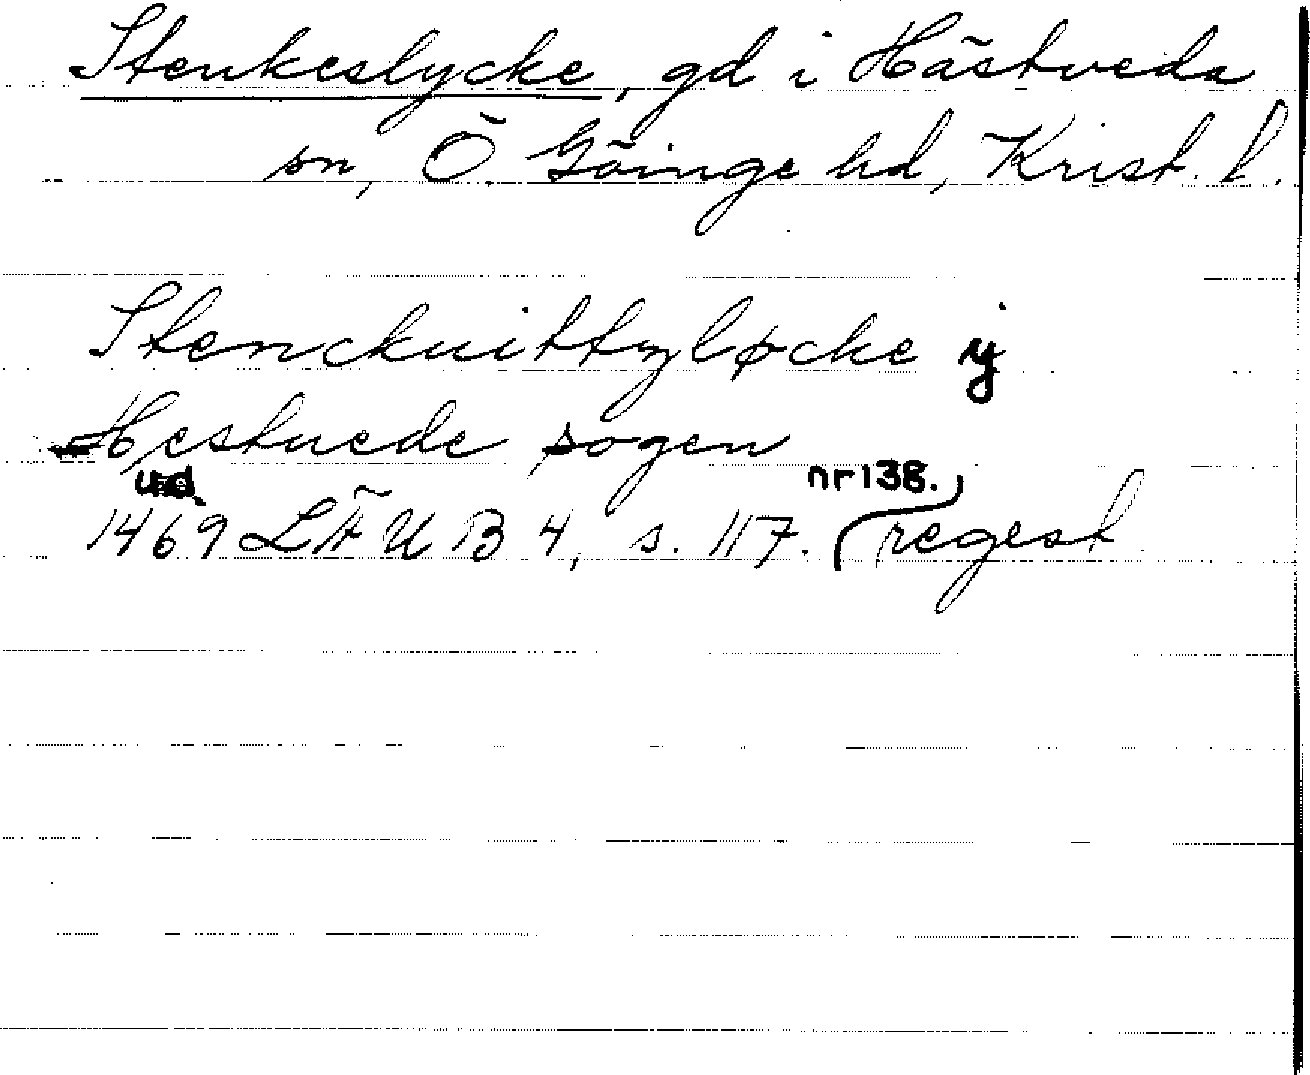 Stenkeslycke, gd i Hästveda
sn, Ö. Göinge hd, Krist. l.
Stenckuittzløcke ij
Hestuede sogen
nr 138.
1469 LÄUB 4, s. 117. (regest)